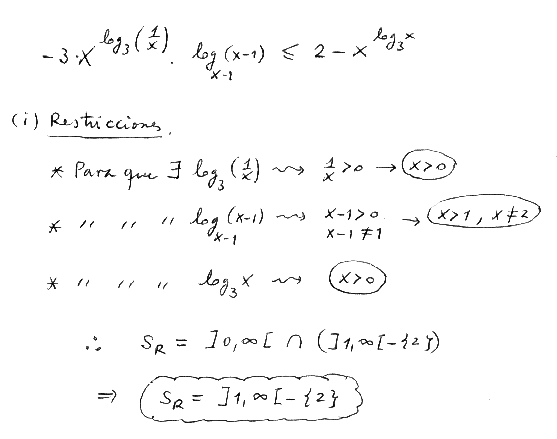 -3·x^log₃(1/x) · log_{x-1}(x-1) ≤ 2 - x^log₃x
(i) Restricciones.
* Para que ∃ log₃(1/x) ⇝ 1/x > 0 → x>0
* " " " log_{x-1}(x-1) ⇝ x-1>0 x-1≠1 → x>1, x≠2
* " " " log₃x ⇝ x>0
∴ S_R = ]0,∞[ ∩ (]1,∞[-{2})
⇒ S_R = ]1,∞[-{2}